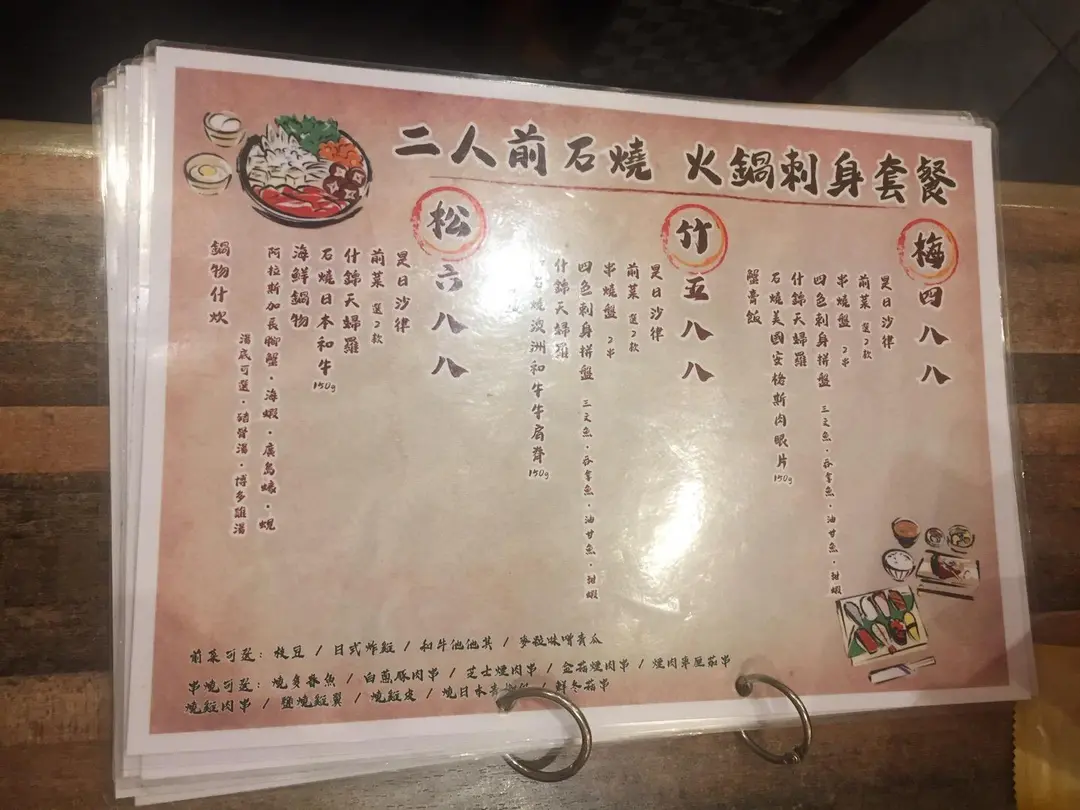 二人前石燒 火鍋刺身套餐
梅四八八
是日沙律
前菜 選2款
串燒盤 2串
四色刺身拼盤 三文魚・吞拿魚・油甘魚・甜蝦
什錦天婦羅
石燒美國安格斯肉眼片150g
蟹膏飯
竹五八八
是日沙律
前菜 選2款
串燒盤 2串
四色刺身拼盤 三文魚・吞拿魚・油甘魚・甜蝦
什錦天婦羅
石燒澳洲和牛牛肩脊150g
松六八八
是日沙律
前菜 選2款
什錦天婦羅
石燒日本和牛150g
海鮮鍋物
阿拉斯加長腳蟹・海蝦・廣島蠔・蜆
鍋物什炊
湯底可選・豬骨湯・博多雞湯
前菜可選：枝豆 / 日式炸雞 / 和牛他他其 / 麥粒味噌青瓜
串燒可選：燒多春魚 / 白蔥豚肉串 / 芝士煙肉串 / 金菇煙肉串 / 煙肉車厘茄串
燒雞肉串 / 鹽燒雞翼 / 燒雞皮 / 燒日本青 / 鮮冬菇串